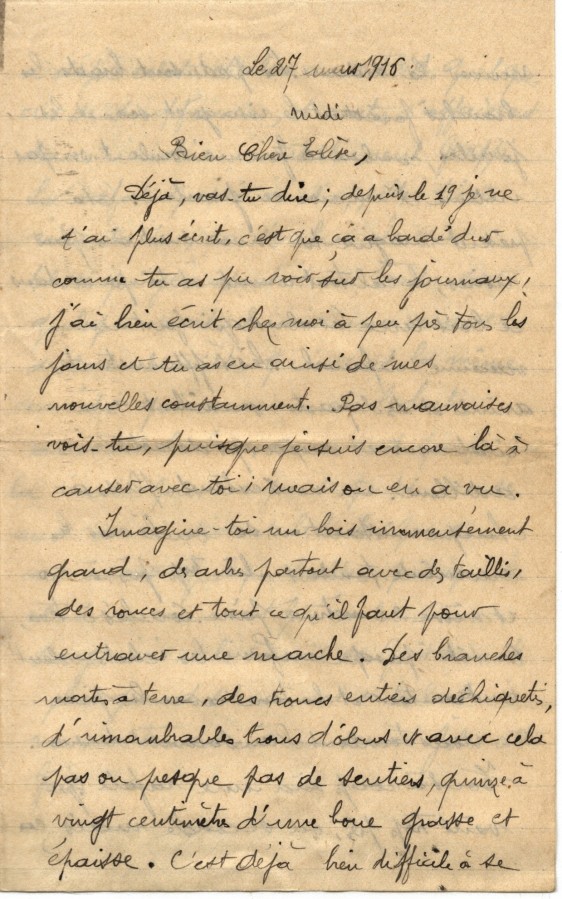 Le 27 mars 1916
midi
Bien Chère Elise,
Déjà, vas-tu dire ; depuis le 19 je ne
t'ai plus écrit, c'est que ça a bardé dur
comme tu as pu voir sur les journaux,
j'ai bien écrit chez moi à peu près tous les
jours et tu as eu ainsi de mes
nouvelles constamment. Pas mauvaises
vois-tu, puisque je suis encore là à
causer avec toi ; mais on en a vu.
Imagine-toi un bois immensément
grand ; des arbres partout avec des taillis,
des ronces et tout ce qu'il faut pour
entraver une marche. Des branches
mortes à terre, des troncs entiers déchiquetés,
d'innombrables trous d'obus et avec cela
pas ou presque pas de sentiers, quinze à
vingt centimètres d'une boue grasse et
épaisse. C'est déjà bien difficile à se